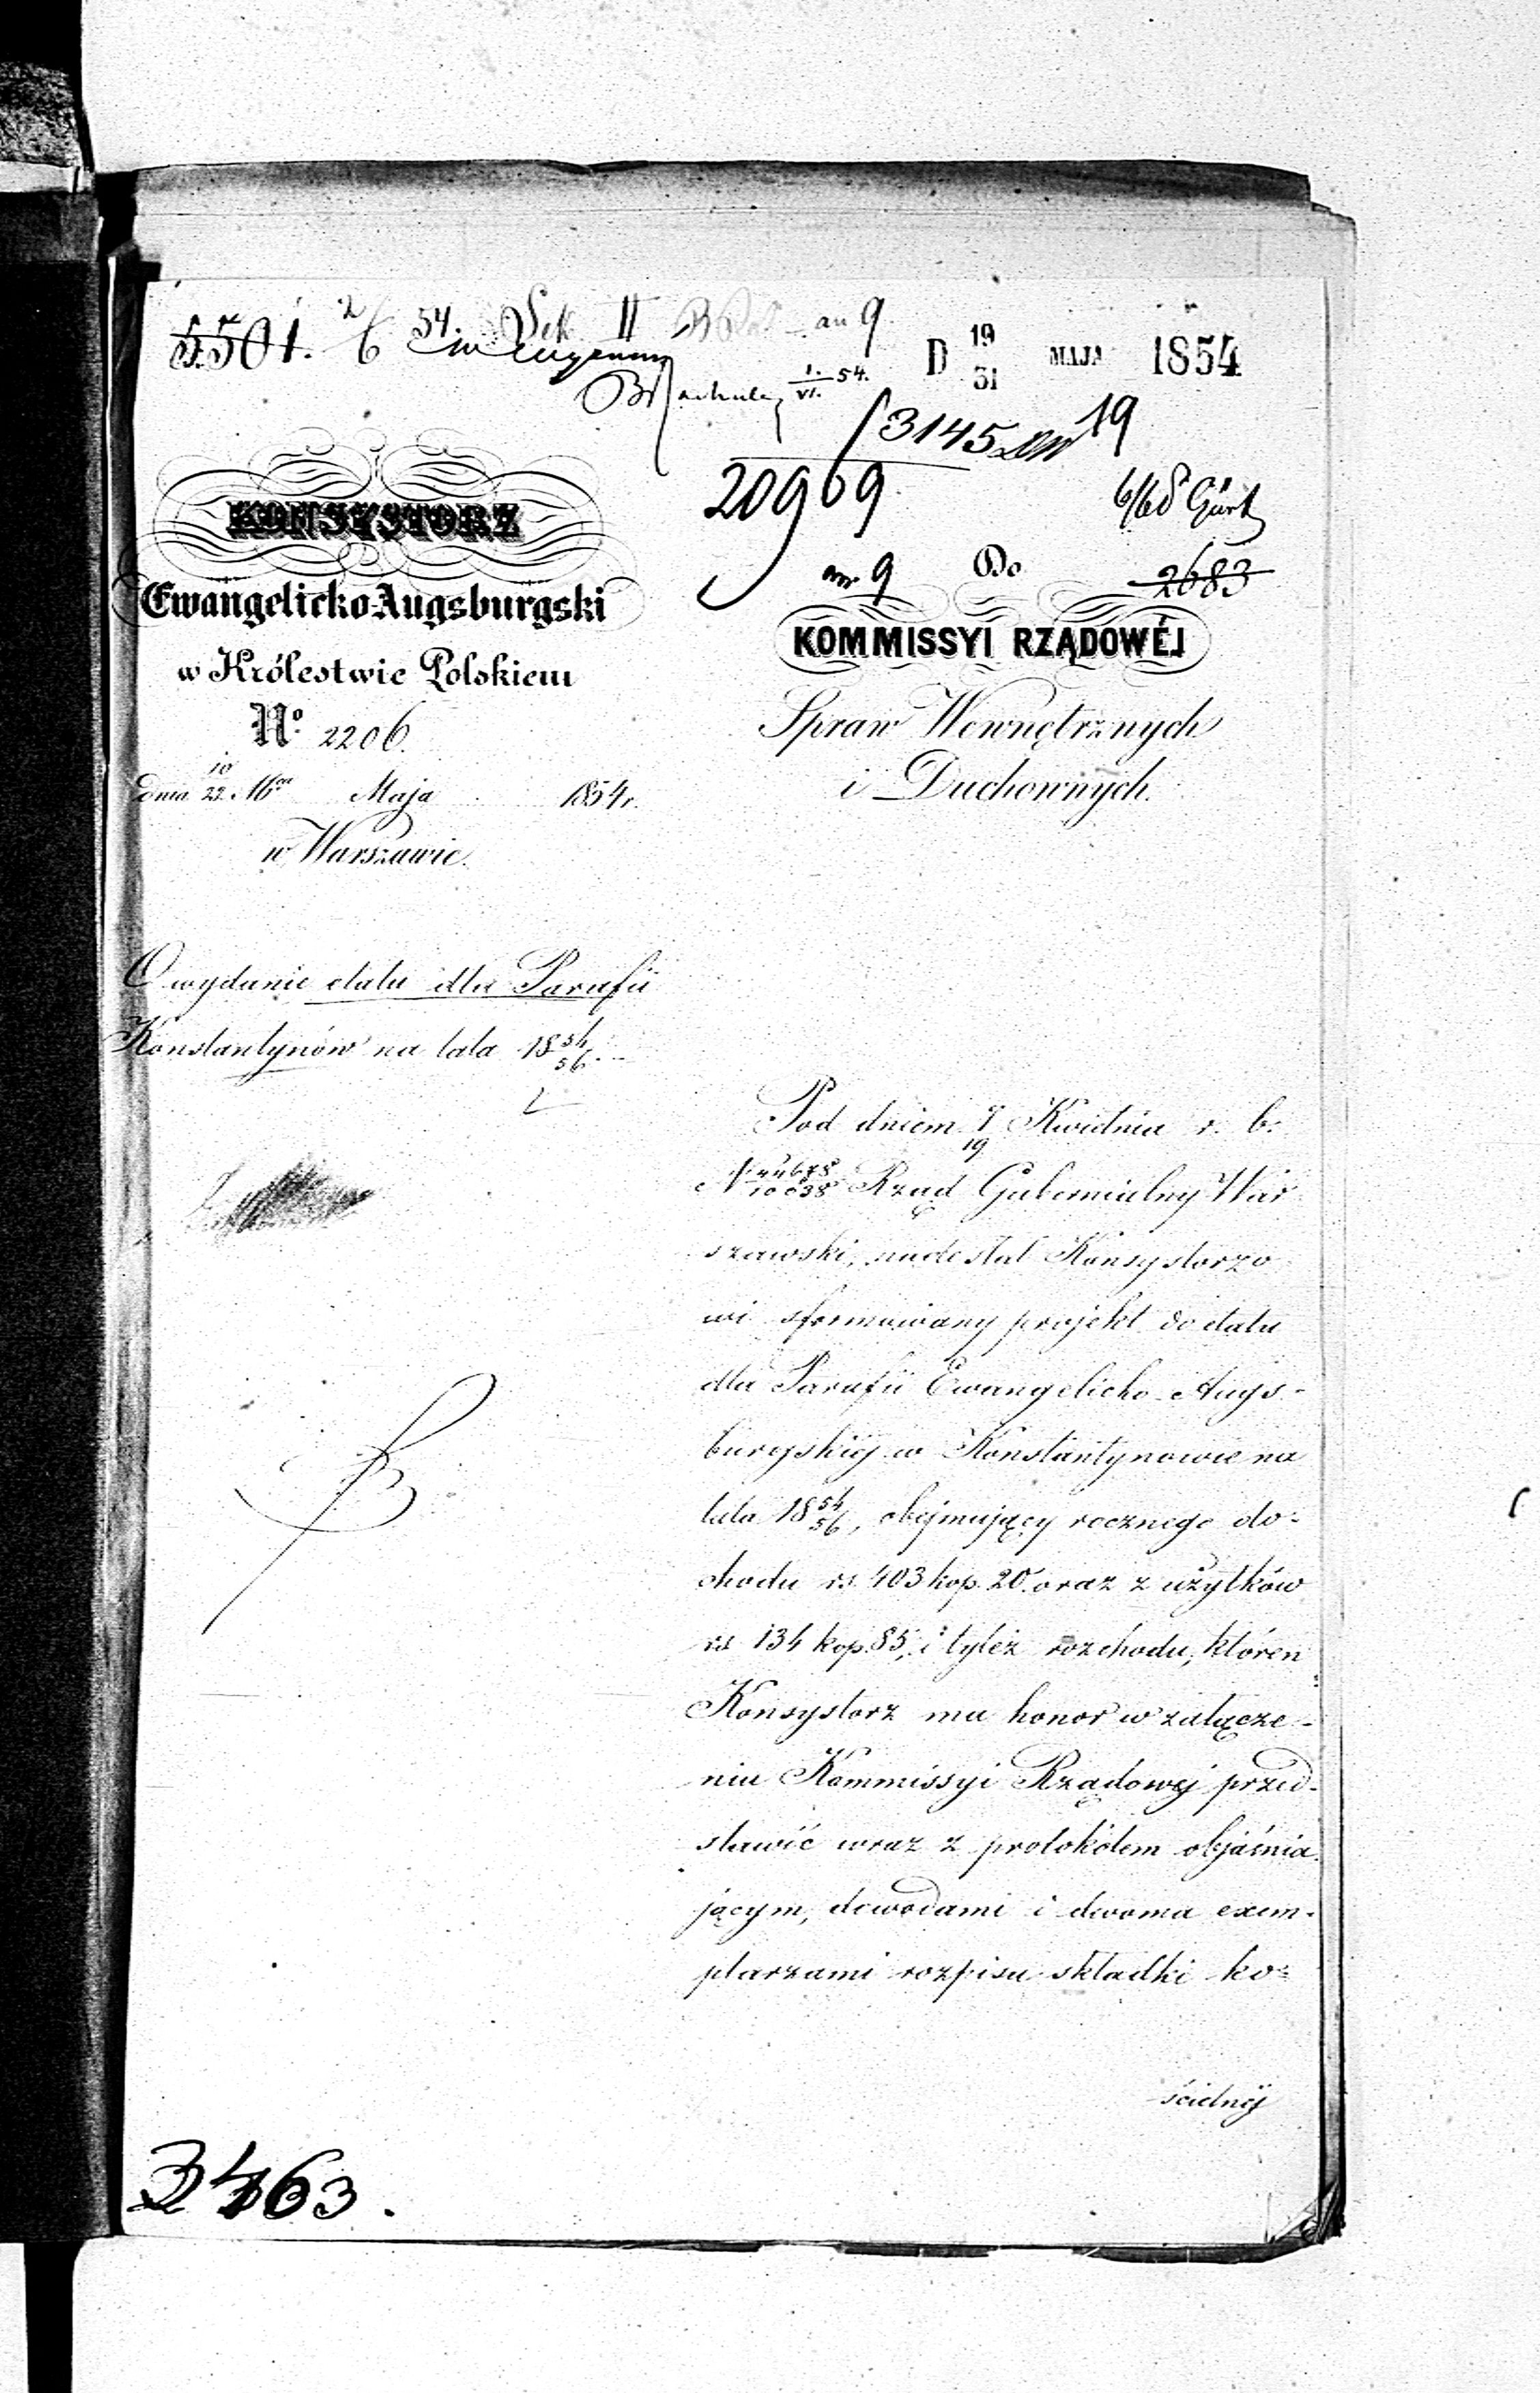 5501. 2/6 54. Sek II an 9
D 19/31 MAJA 1854
1./VI. 54.
3145 19
20969
an 9 Do 2683
KONSYSTORZ
Ewangelicko-Augsburgski
w Królestwie Polskiem
No 2206.
dnia 10/22 Mca Maja 1854 r.
w Warszawie.
KOMMISSYI RZĄDOWÉJ
Spraw Wewnętrznych
i Duchownych.
O wydanie etatu dla Parafii
Konstantynów na lata 18 54/56.
Pod dniem 7/19 Kwietnia r. b.
N 44678/10038 Rząd Gubernialny War
szawski, nadesłał Konsystorzo
wi sformowany projekt do etatu
dla Parafii Ewangelicko-Augs-
burgskiej w Konstantynowie na
lata 18 54/56, obejmujący rocznego do-
chodu rs. 403 kop. 20. oraz z użytków
rs 134 kop. 85, i tyleż rozchodu, któren
Konsystorz ma honor w załącze-
niu Kommissyi Rządowej przed-
stawić wraz z protokółem objaśnia
jącym, dowodami i dwoma exem-
plarzami rozpisu składki ko-
ścielnej
3463.